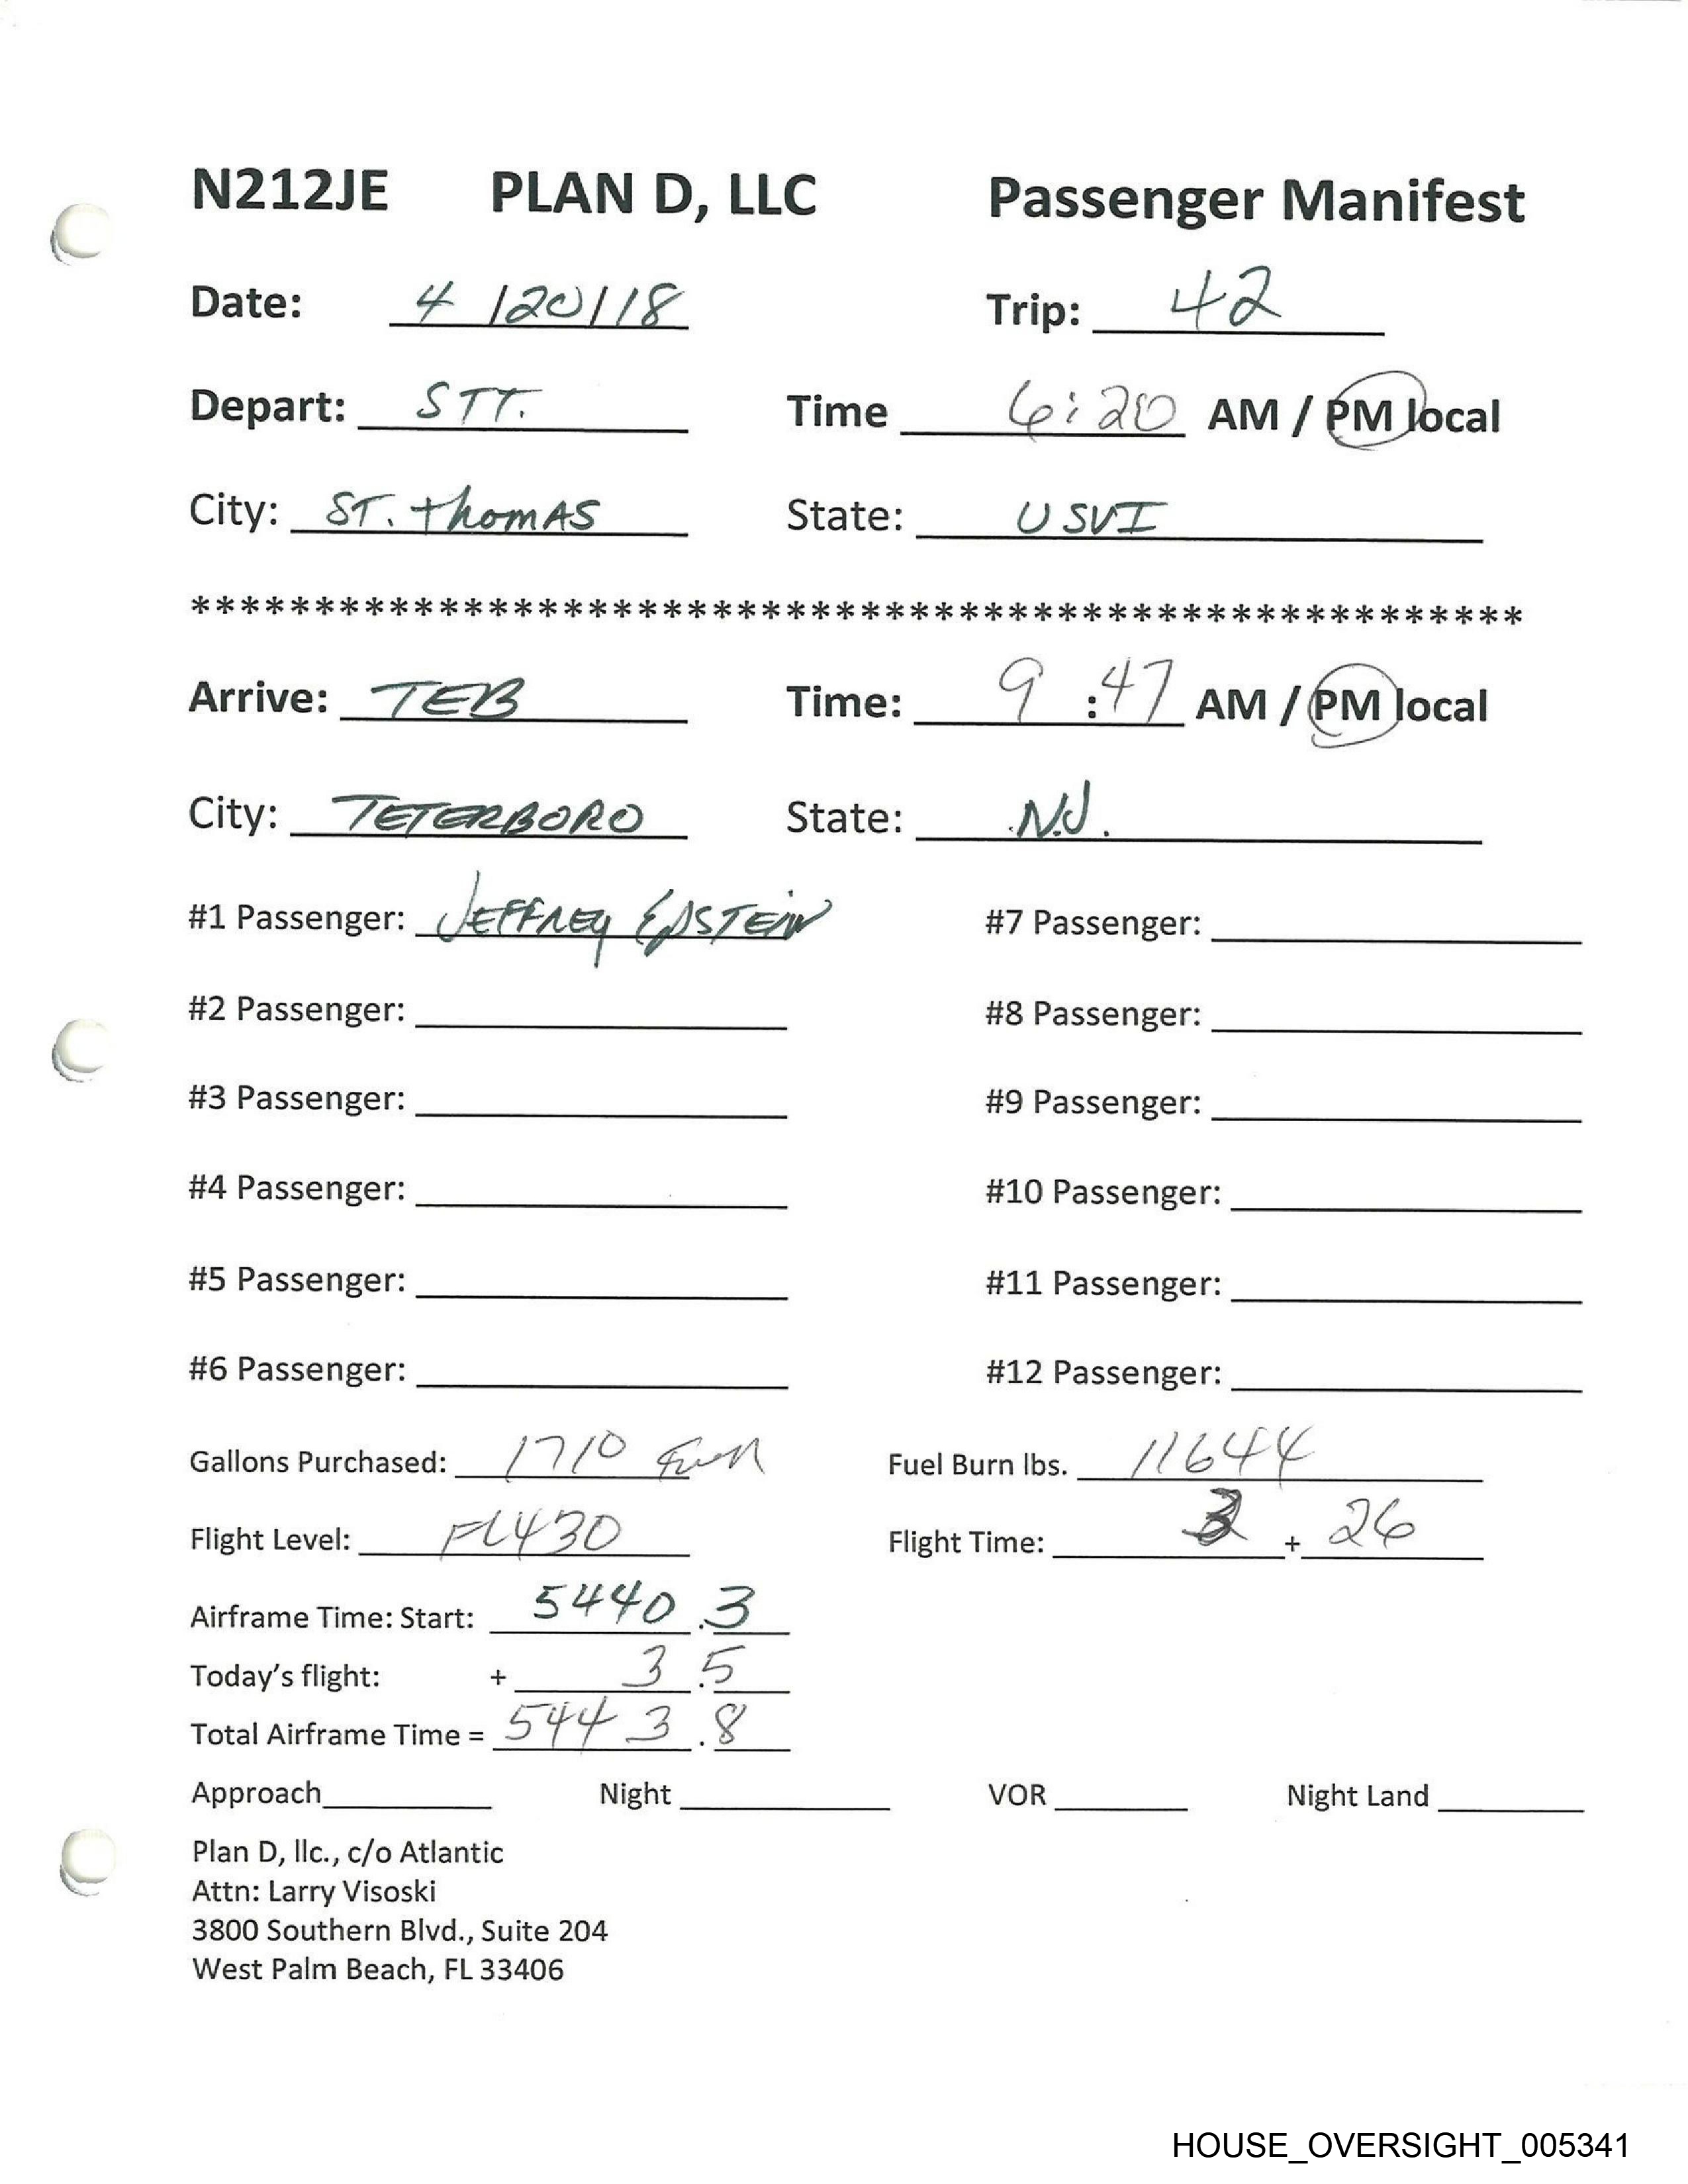 N212JE PLAN D, LLC Passenger Manifest
Date: 4/20/18 Trip: 42
Depart: STT. Time 6:20 AM / PM local
City: ST. Thomas State: USVI
******************************************************
Arrive: TEB Time: 9:47 AM / PM local
City: TETERBORO State: N.J.
#1 Passenger: JEFFREY EPSTEIN #7 Passenger:
#2 Passenger: #8 Passenger:
#3 Passenger: #9 Passenger:
#4 Passenger: #10 Passenger:
#5 Passenger: #11 Passenger:
#6 Passenger: #12 Passenger:
Gallons Purchased: 1710 Fuel Burn lbs. 11644
Flight Level: FL430 Flight Time: 3 + 26
Airframe Time: Start: 5440.3
Today's flight: + 3.5
Total Airframe Time = 5443.8
Approach Night VOR Night Land
Plan D, llc., c/o Atlantic
Attn: Larry Visoski
3800 Southern Blvd., Suite 204
West Palm Beach, FL 33406
HOUSE_OVERSIGHT_005341